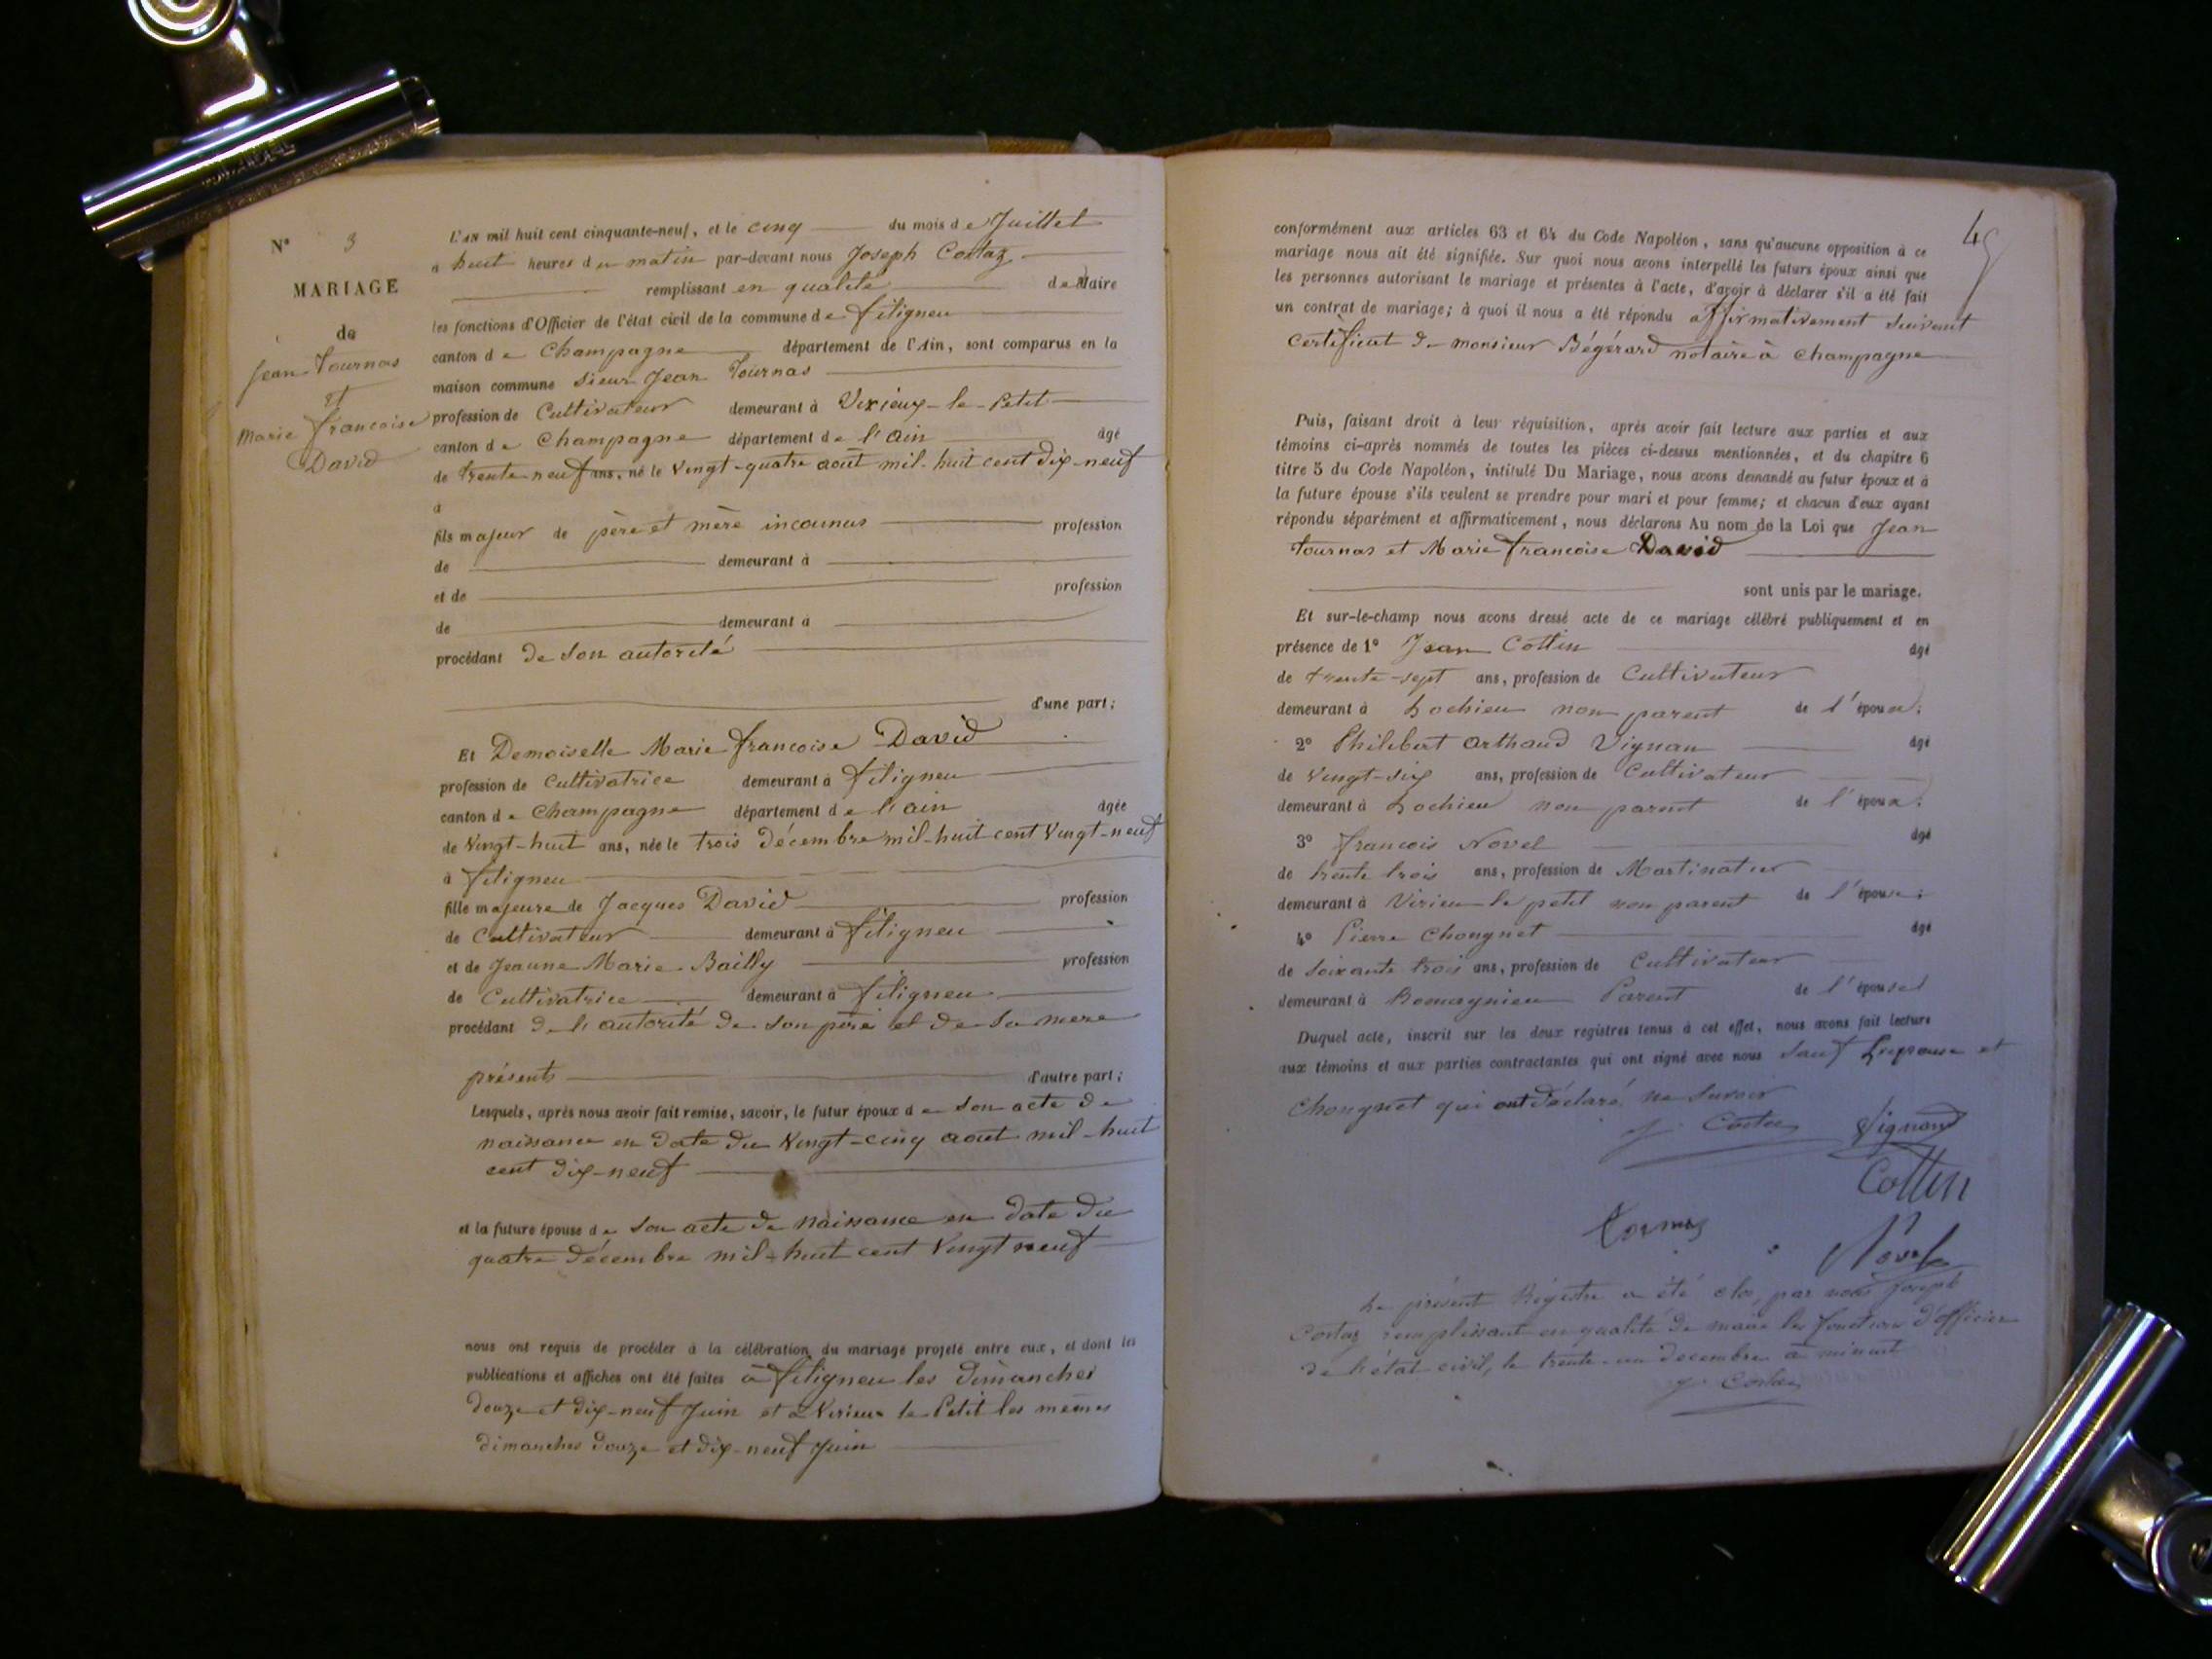 N° 3
MARIAGE
de
jean Tournas
et
Marie francoise
David
L'AN mil huit cent cinquante-neuf, et le cinq du mois de Juillet
à huit heures du matin par-devant nous Joseph Costaz
remplissant en qualité de Maire
les fonctions d'Officier de l'état civil de la commune de fitigneu
canton de Champagne département de l'Ain, sont comparus en la
maison commune Sieur Jean Tournas
profession de Cultivateur demeurant à Virieux-le-Petit
canton de Champagne département de l'ain âgé
de trente-neuf ans, né le vingt-quatre août mil-huit cent dix-neuf
à
fils majeur de père et mère inconnus profession
de demeurant à
et de profession
de demeurant à
procédant de son autorité
d'une part;
Et Demoiselle Marie francoise David
profession de Cultivatrice demeurant à fitigneu
canton de Champagne département de l'ain âgée
de vingt-huit ans, née le trois décembre mil-huit cent vingt-neuf
à fitigneu
fille majeure de Jacques David profession
de Cultivateur demeurant à fitigneu
et de Jeanne Marie Bailly profession
de Cultivatrice demeurant à fitigneu
procédant de l'autorité de son père et de sa mere
présents d'autre part;
Lesquels, après nous avoir fait remise, savoir, le futur époux de son acte de
naissance en date du vingt-cinq aout mil-huit
cent dix-neuf
et la future épouse de son acte de naissance en date du
quatre décembre mil-huit cent vingt neuf
nous ont requis de procéder à la célébration du mariage projeté entre eux, et dont les
publications et affiches ont été faites à fitigneu les dimanches
douze et dix-neuf juin et a Virieux le Petit les mêmes
dimanches douze et dix-neuf juin
conformément aux articles 63 et 64 du Code Napoléon, sans qu'aucune opposition à ce
mariage nous ait été signifiée. Sur quoi nous avons interpellé les futurs époux ainsi que
les personnes autorisant le mariage et présentes à l'acte, d'avoir à déclarer s'il a été fait
un contrat de mariage; à quoi il nous a été répondu affirmativement suivant
certificat de monsieur Bégérard notaire à Champagne
Puis, faisant droit à leur réquisition, après avoir fait lecture aux parties et aux
témoins ci-après nommés de toutes les pièces ci-dessus mentionnées, et du chapitre 6
titre 5 du Code Napoléon, intitulé Du Mariage, nous avons demandé au futur époux et à
la future épouse s'ils veulent se prendre pour mari et pour femme; et chacun d'eux ayant
répondu séparément et affirmativement, nous déclarons Au nom de la Loi que Jean
Tournas et Marie francoise David
sont unis par le mariage.
Et sur-le-champ nous avons dressé acte de ce mariage célébré publiquement et en
présence de 1° Jean Cottin âgé
de trente-sept ans, profession de Cultivateur
demeurant à Lochieu non parent de l'époux;
2° Philibert Arthaud Vignan âgé
de vingt-six ans, profession de Cultivateur
demeurant à Lochieu non parent de l'époux;
3° francois Novel âgé
de trente trois ans, profession de Martinatier
demeurant à Virieu le petit non parent de l'époux;
4° Pierre Chongnet âgé
de soixante trois ans, profession de Cultivateur
demeurant à Romagnieu Parent de l'épouse
Duquel acte, inscrit sur les deux registres tenus à cet effet, nous avons fait lecture
aux témoins et aux parties contractantes qui ont signé avec nous sauf et
Chongnet qui ont déclaré ne savoir
J. Costaz Vignand
Cottin
Novel
Le présent Régistre a été clos, par nous Joseph
Costaz remplissant en qualité de maire les fonctions d'officier
de l'état civil, le trente-un decembre à minuit
J. Costaz